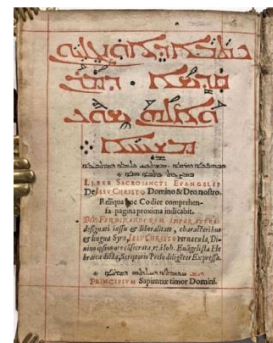 ܟܬܒܐ ܕܐܘܢܓܠܝܘܢ
ܩܕܝܫܐ . ܕܡܪܢ
ܘܐܠܗܢ ܝܫܘܥ
ܡܫܝܚܐ
LIBER SACROSANCTI EVANGELII
De IESV CHRISTO Domino & Deo nostro.
Reliqua hoc Codice comprehen-
sa pagina proxima indicabit.
DIV. FERDINANDI ROM. IMPERATORIS
designati iussu & liberalitate, characteribus
& lingua Syra, IESV CHRISTO vernacula, Di-
uino ipsius ore cōsecrata, et à Ioh. Euāgelista He-
braica dicta, Scriptorio Prelo diligēter Expressa.
PRINCIPIVM Sapientiæ timor Domini.